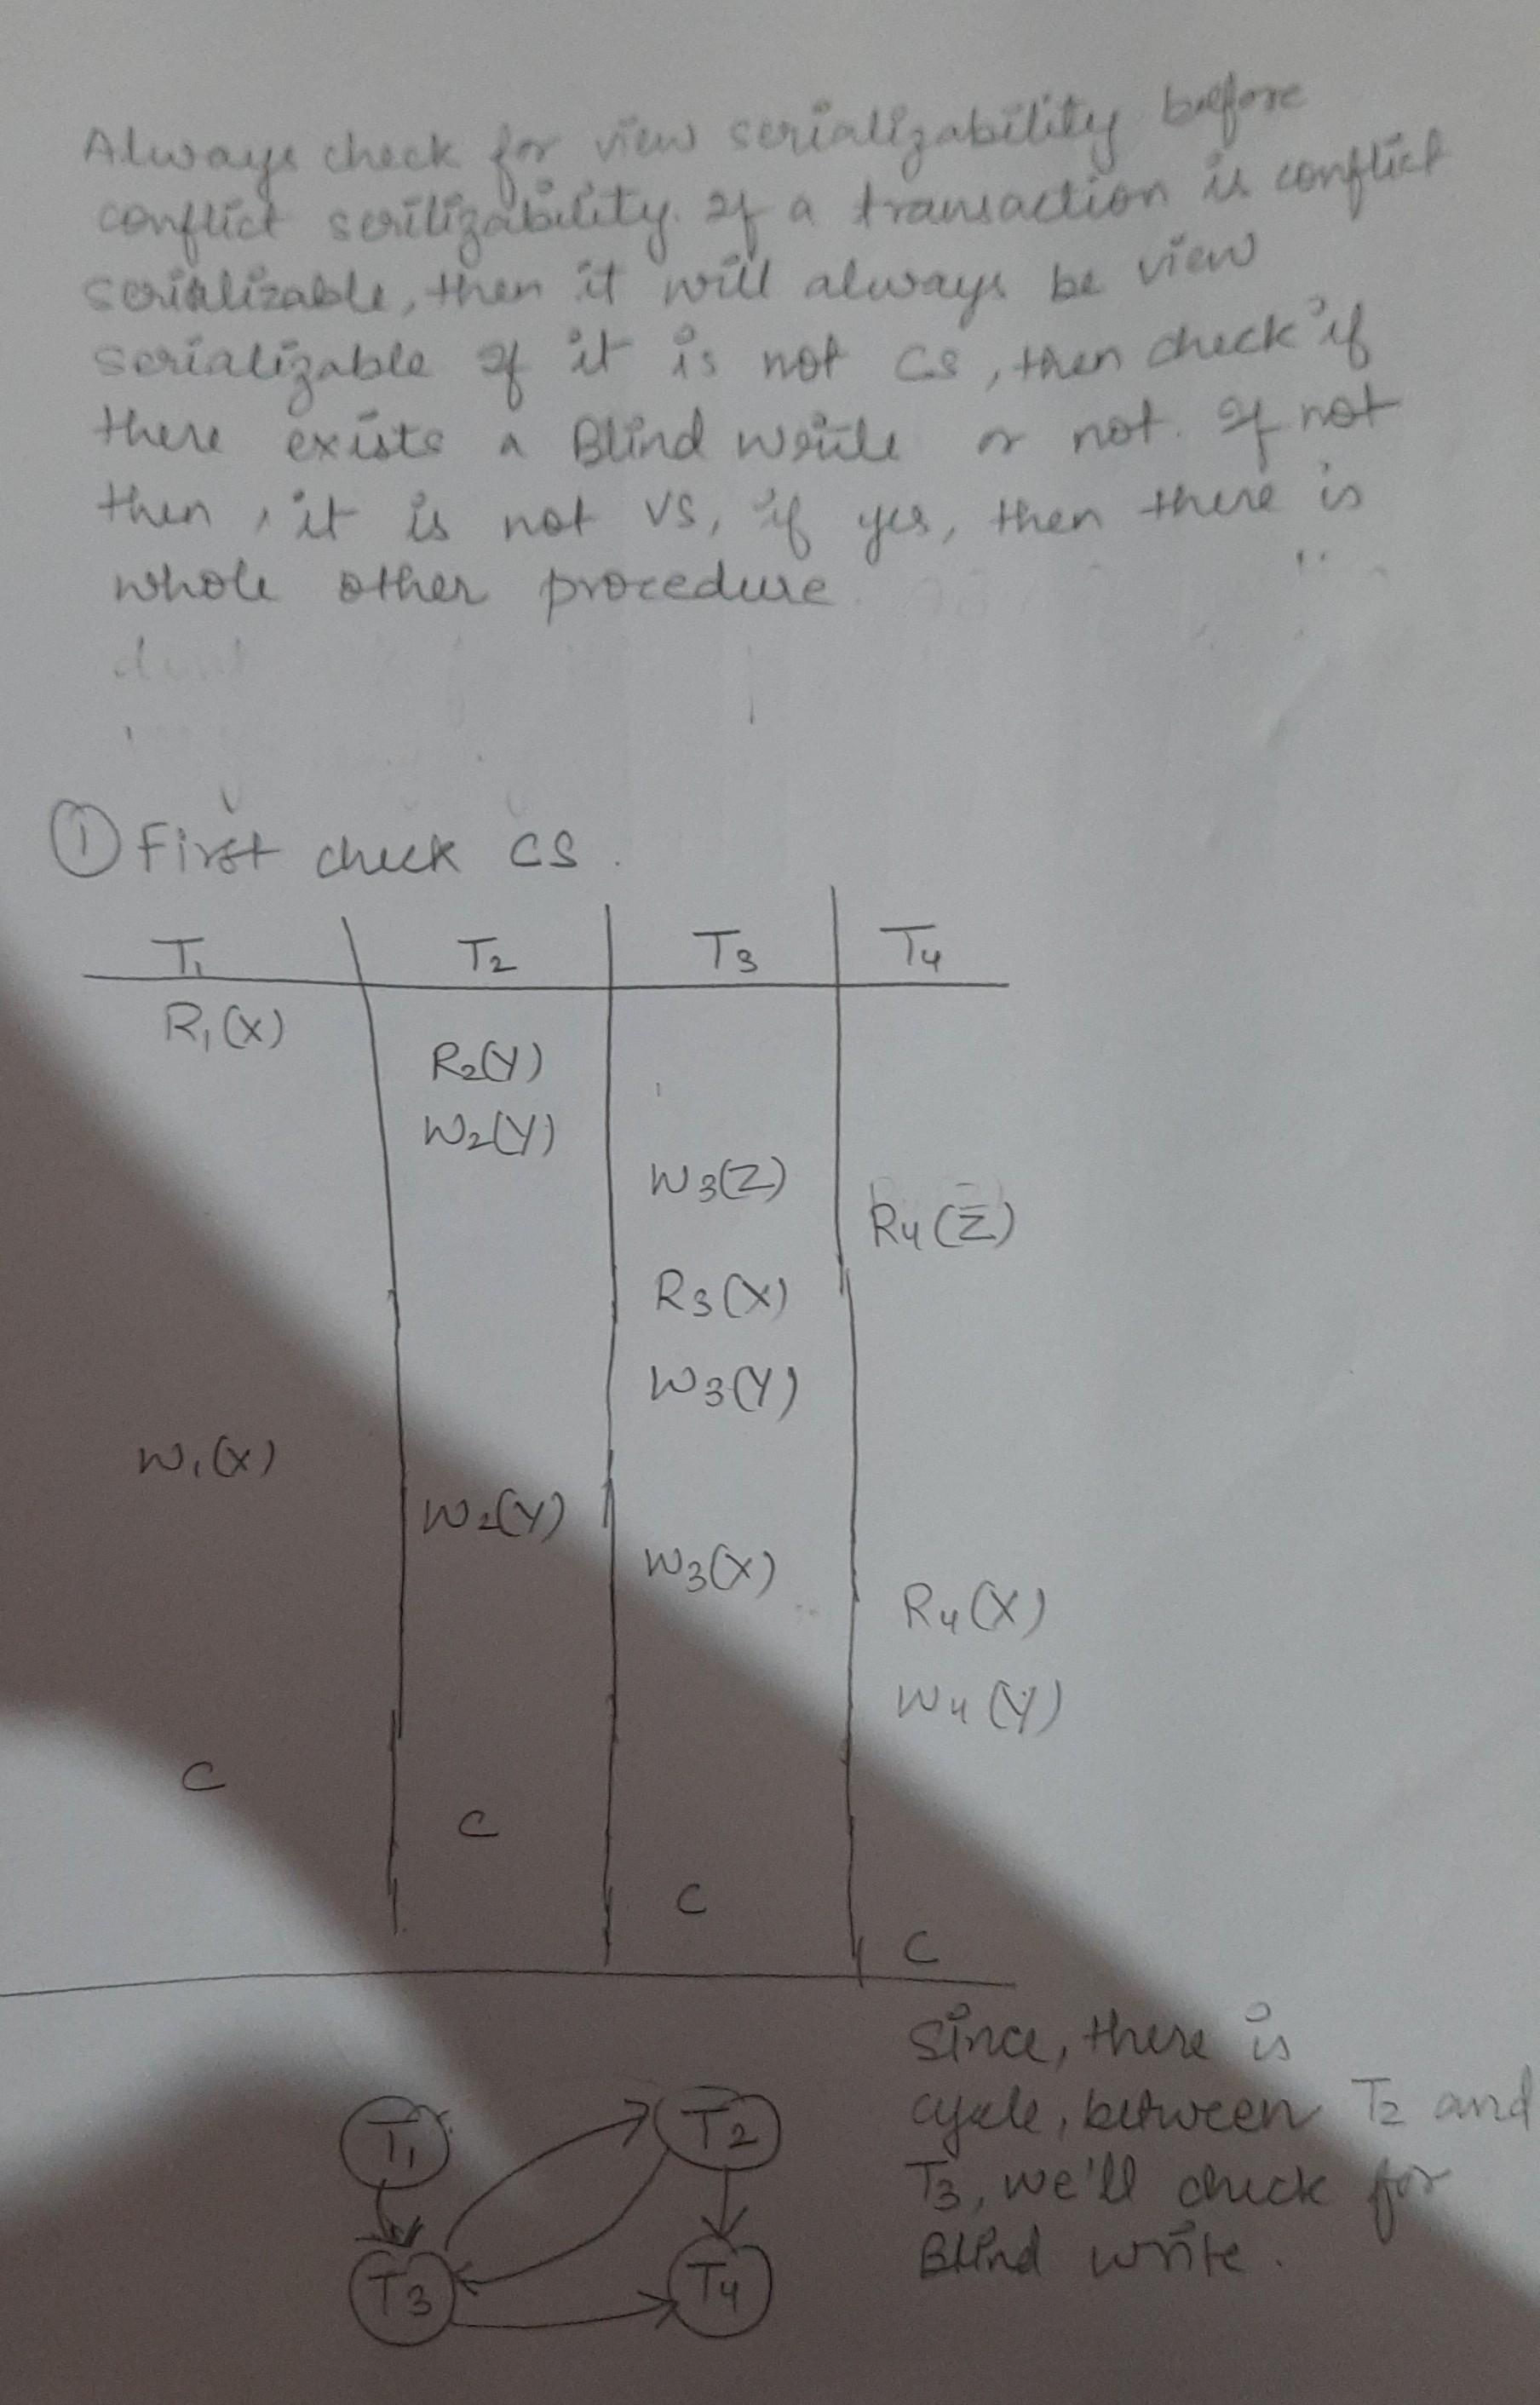 Always check for view serializability before
conflict serilizability. If a transaction is conflict
serializable, then it will always be view
serializable If it is not CS, then check if
there exists a Blind write or not. If not
then, it is not VS, if yes, then there is
whole other procedure.
① First check CS.
T1 T2 T3 T4
R1(X)
R2(Y)
W2(Y)
W3(Z)
R4(Z)
R3(X)
W3(Y)
W1(X)
W2(Y)
W3(X)
R4(X)
W4(Y)
C
C
C
C
Since, there is
cycle, between T2 and
T3, we'll check for
Blind write.
T1 T2
T3 T4